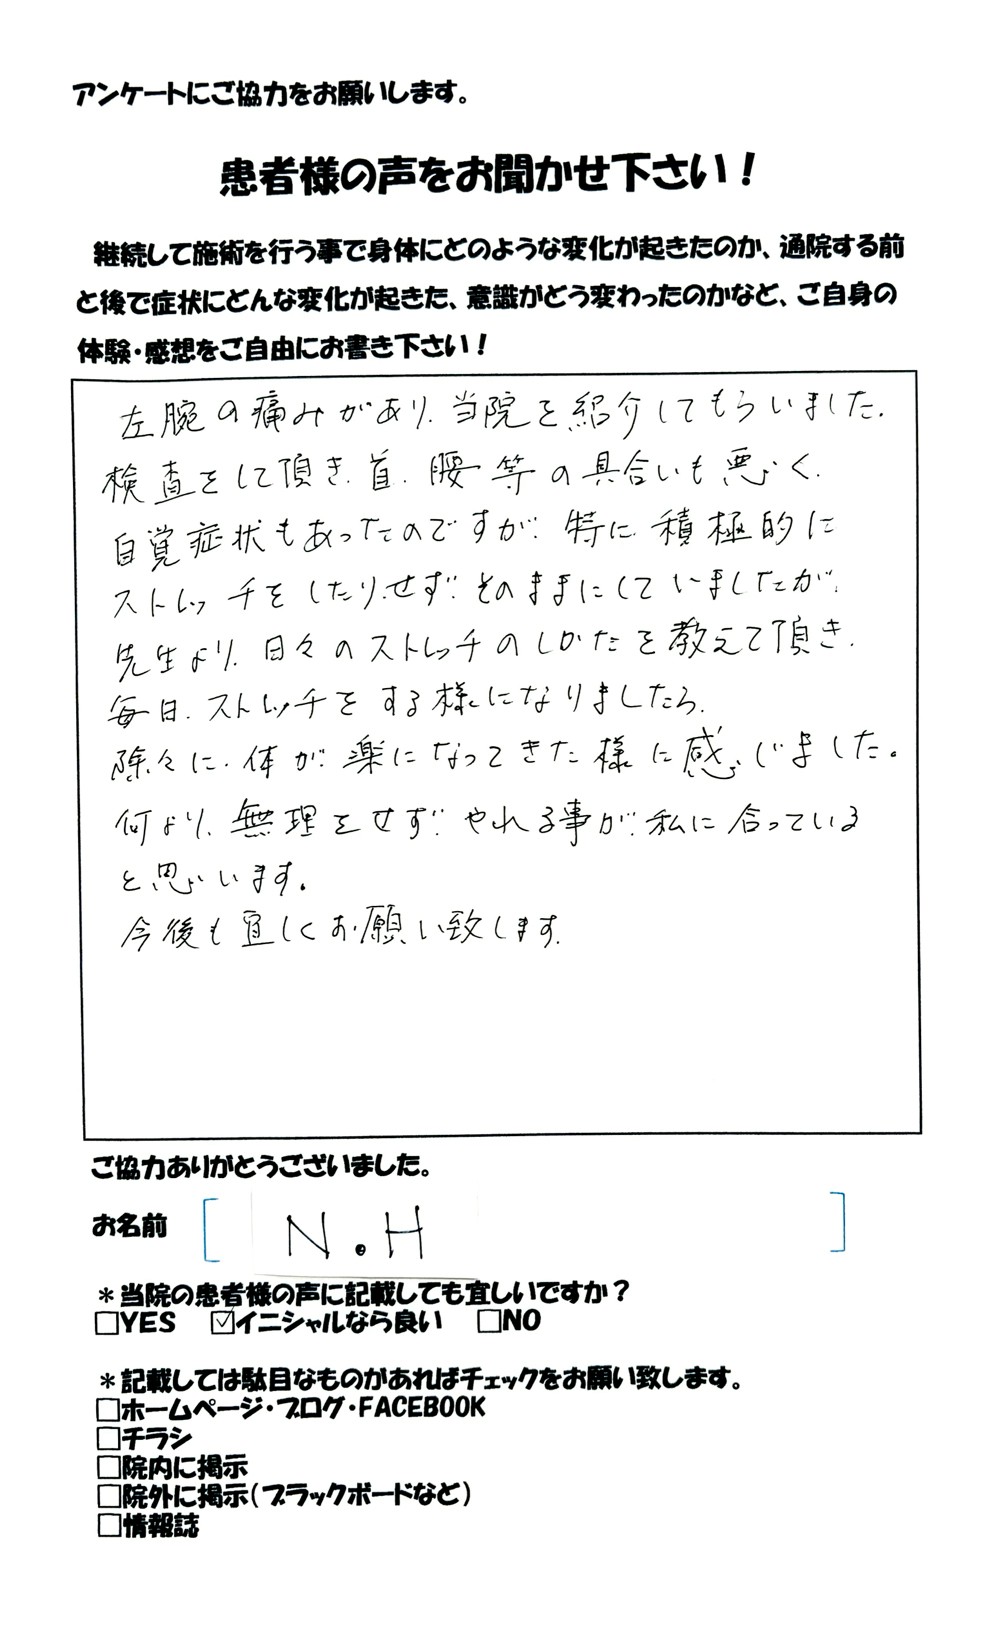 アンケートにご協力をお願いします。
患者様の声をお聞かせ下さい！
継続して施術を行う事で身体にどのような変化が起きたのか、通院する前
と後で症状にどんな変化が起きた、意識がどう変わったのかなど、ご自身の
体験・感想をご自由にお書き下さい！
左腕の痛みがあり、当院を紹介してもらいました。
検査をして頂き、首、腰等の具合いも悪く、
自覚症状もあったのですが、特に積極的に
ストレッチをしたりせず、そのままにしていましたが、
先生より、日々のストレッチのしかたを教えて頂き、
毎日、ストレッチをする様になりましたら、
除々に、体が、楽になってきた様に感じました。
何より、無理をせず、やれる事が、私に合っている
と思います。
今後も宜しくお願い致します。
ご協力ありがとうございました。
お名前 [ N.H ]
＊当院の患者様の声に記載しても宜しいですか？
□YES ☑イニシャルなら良い □NO
＊記載しては駄目なものがあればチェックをお願い致します。
□ホームページ・ブログ・FACEBOOK
□チラシ
□院内に掲示
□院外に掲示（ブラックボードなど）
□情報誌